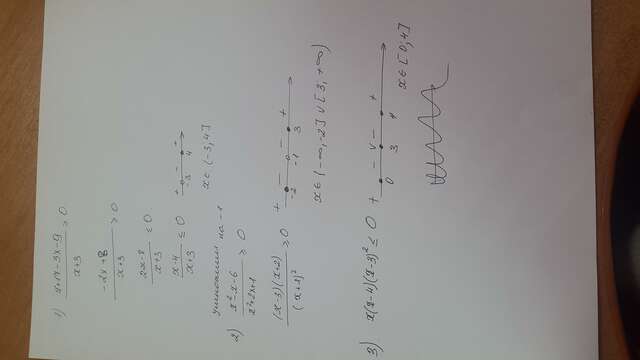 1) x+17-3x-9/x+3 ≥ 0
-2x+8/x+3 ≥ 0
2x-8/x+3 ≤ 0
x-4/x+3 ≤ 0
+ - +
-3 4
x ∈ (-3; 4]
умножили на -1
2) x²-x-6/x²+2x+1 ≥ 0
(x-3)(x+2)/(x+1)² ≥ 0
+ - - +
-2 -1 3
x ∈ (-∞, -2] ∪ [3, +∞)
3) x(x-4)(x-3)² ≤ 0
+ - v - +
0 3 4
x ∈ [0; 4]